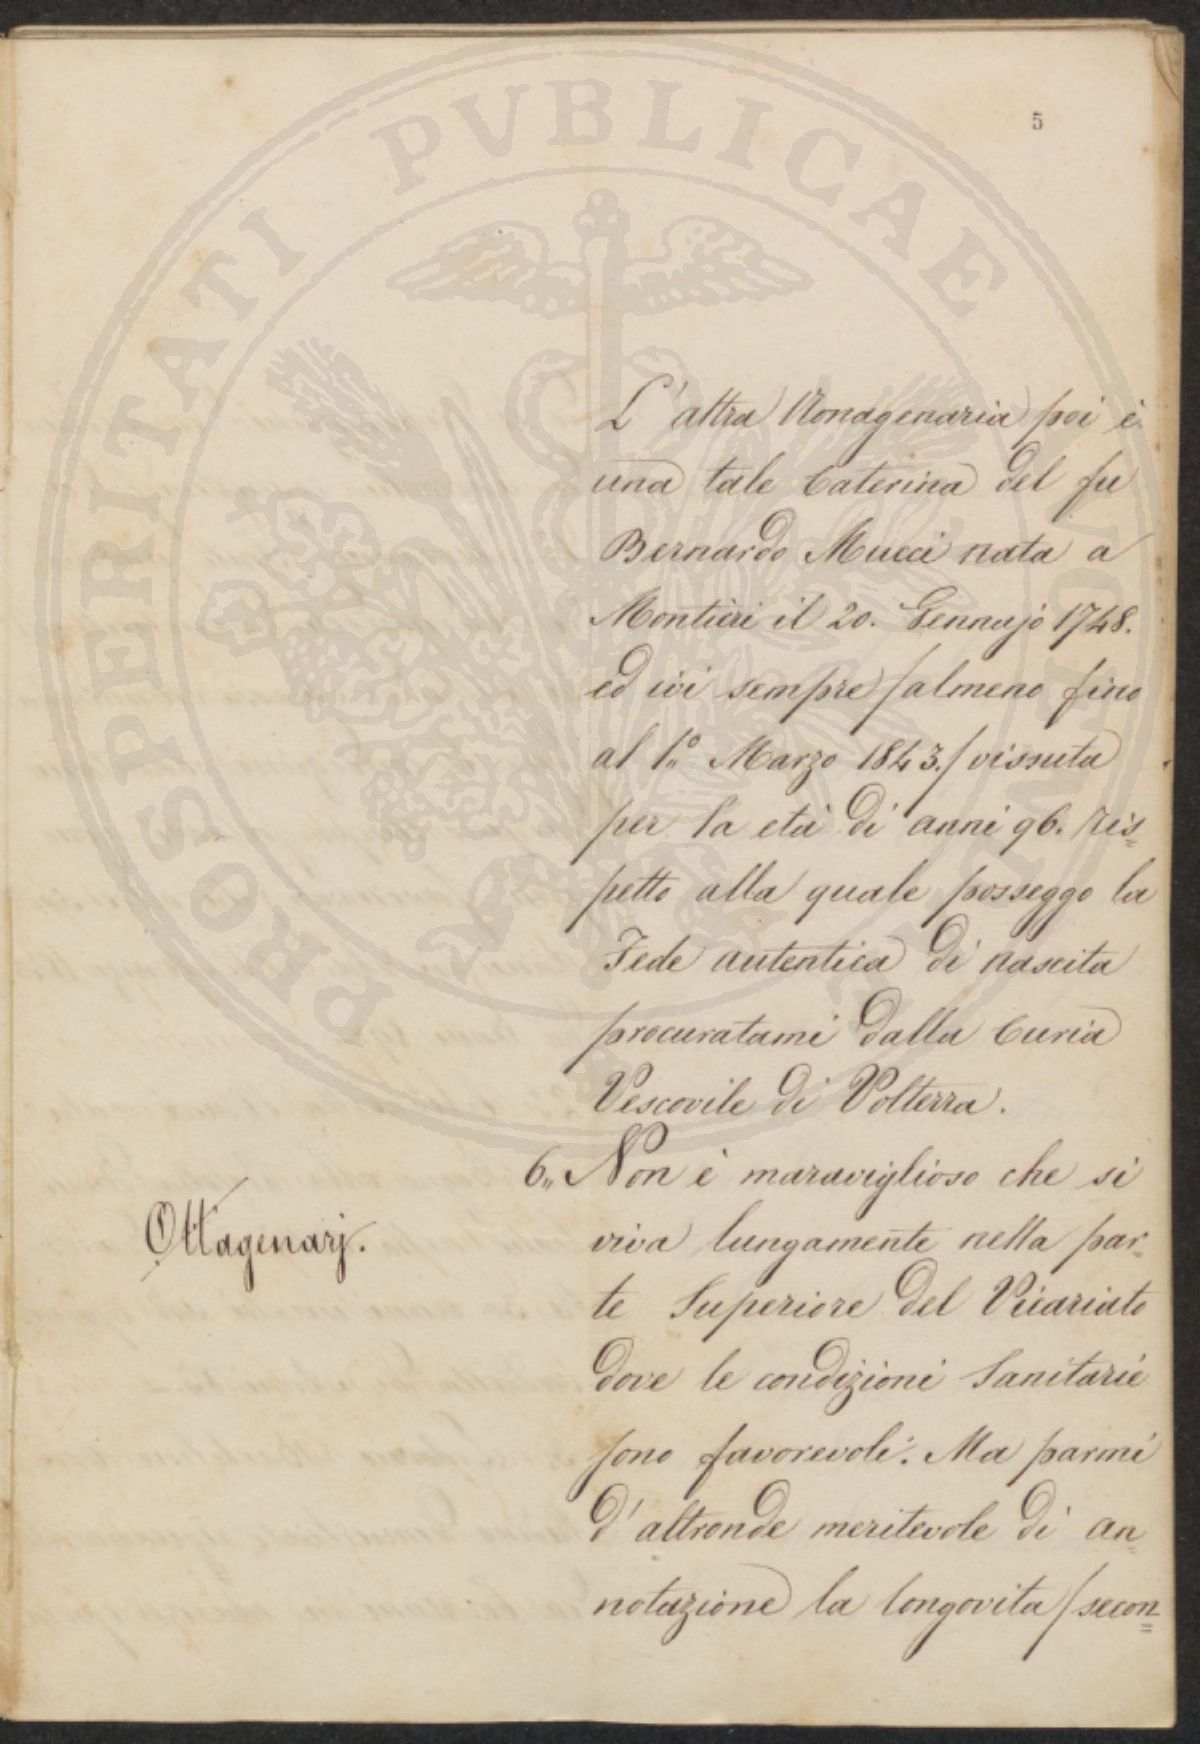 5
L'altra Nonagenaria poi è
una tale Caterina del fu
Bernardo Mucci nata a
Montieri il 20. Gennajo 1748.
ed ivi sempre /almeno fino
al 1.º Marzo 1843./ vissuta
per la età di anni 96. ris=
petto alla quale posseggo la
Fede autentica di nascita
procuratami dalla Curia
Vescovile di Volterra.
Ottagenarj.
6,, Non è maraviglioso che si
viva lungamente nella par=
te Superiore del Vicariato
dove le condizioni Sanitarie
sono favorevoli. Ma parmi
d'altronde meritevole di an=
notazione la longovita /secon=
PROSPERITATI PVBLICAE